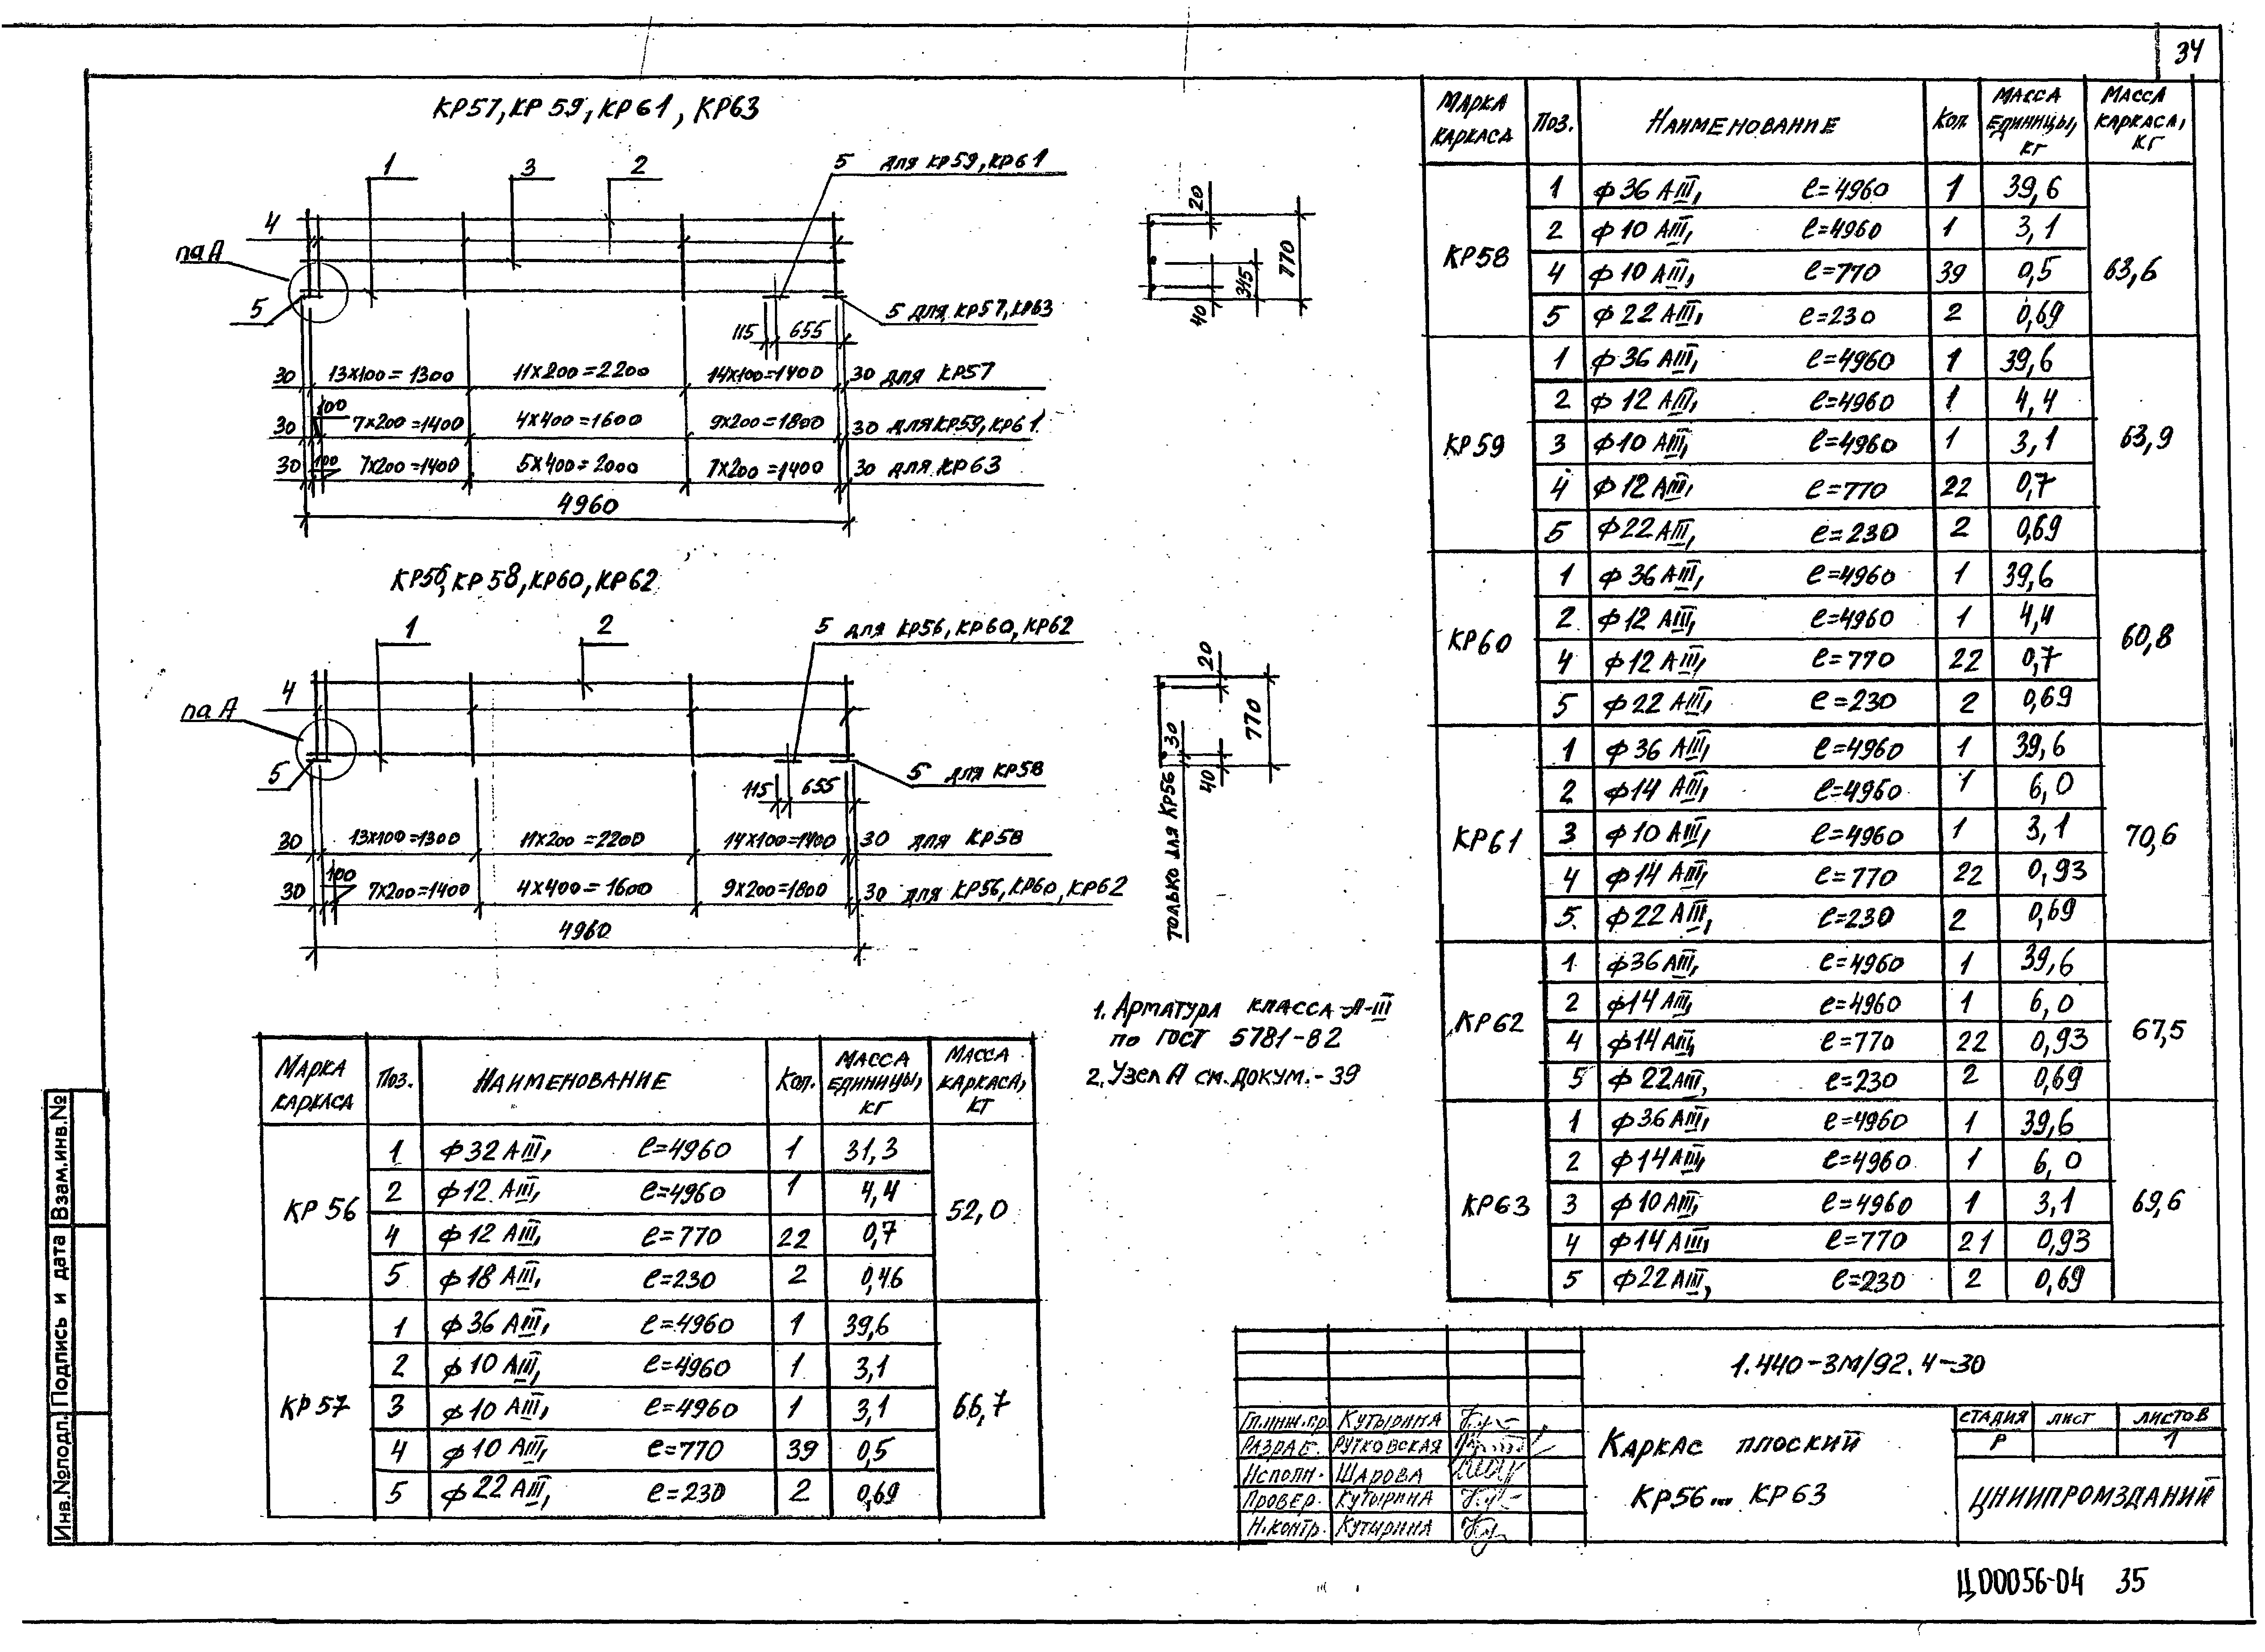 34
КР57, КР59, КР61, КР63
1 3 2 5 для КР59, КР61
4
па А
5
5 для КР57, КР63
115 655
30 13х100=1300 11х200=2200 14х100=1400 30 для КР57
100
30 7х200=1400 4х400=1600 9х200=1800 30 для КР59, КР61
30 100 7х200=1400 5х400=2000 7х200=1400 30 для КР63
4960
20
40 345 770
КР56, КР58, КР60, КР62
1 2 5 для КР56, КР60, КР62
4
па А
5
5 для КР58
115 655
30 13х100=1300 11х200=2200 14х100=1400 30 для КР58
100
30 7х200=1400 4х400=1600 9х200=1800 30 для КР56, КР60, КР62
4960
20
30 40 770
только для КР56
1. Арматура класса А-III
по ГОСТ 5781-82
2. Узел А см. докум. -39
Марка каркаса Поз. Наименование Кол. Масса единицы, кг Масса каркаса, кг
КР56 52,0
1 ф32 АIII, ℓ=4960 1 31,3
2 ф12 АIII, ℓ=4960 1 4,4
4 ф12 АIII, ℓ=770 22 0,7
5 ф18 АIII, ℓ=230 2 0,46
КР57 66,7
1 ф36 АIII, ℓ=4960 1 39,6
2 ф10 АIII, ℓ=4960 1 3,1
3 ф10 АIII, ℓ=4960 1 3,1
4 ф10 АIII, ℓ=770 39 0,5
5 ф22 АIII, ℓ=230 2 0,69
Марка каркаса Поз. Наименование Кол. Масса единицы, кг Масса каркаса, кг
КР58 63,6
1 ф36 АIII, ℓ=4960 1 39,6
2 ф10 АIII, ℓ=4960 1 3,1
4 ф10 АIII, ℓ=770 39 0,5
5 ф22 АIII, ℓ=230 2 0,69
КР59 63,9
1 ф36 АIII, ℓ=4960 1 39,6
2 ф12 АIII, ℓ=4960 1 4,4
3 ф10 АIII, ℓ=4960 1 3,1
4 ф12 АIII, ℓ=770 22 0,7
5 ф22 АIII, ℓ=230 2 0,69
КР60 60,8
1 ф36 АIII, ℓ=4960 1 39,6
2 ф12 АIII, ℓ=4960 1 4,4
4 ф12 АIII, ℓ=770 22 0,7
5 ф22 АIII, ℓ=230 2 0,69
КР61 70,6
1 ф36 АIII, ℓ=4960 1 39,6
2 ф14 АIII, ℓ=4960 1 6,0
3 ф10 АIII, ℓ=4960 1 3,1
4 ф14 АIII, ℓ=770 22 0,93
5 ф22 АIII, ℓ=230 2 0,69
КР62 67,5
1 ф36 АIII, ℓ=4960 1 39,6
2 ф14 АIII, ℓ=4960 1 6,0
4 ф14 АIII, ℓ=770 22 0,93
5 ф22 АIII, ℓ=230 2 0,69
КР63 69,6
1 ф36 АIII, ℓ=4960 1 39,6
2 ф14 АIII, ℓ=4960 1 6,0
3 ф10 АIII, ℓ=4960 1 3,1
4 ф14 АIII, ℓ=770 21 0,93
5 ф22 АIII, ℓ=230 2 0,69
1.440-3м/92.4-30
Гл.инж.пр. Кутырина
Разраб. Рутковская
Исполн. Шарова
Провер. Кутырина
Н.контр. Кутырина
Каркас плоский
КР56... КР63
Стадия Лист Листов
Р 1
ЦНИИПРОМЗДАНИЙ
Инв.№подл. Подпись и дата Взам.инв.№
Ц00056-04 35